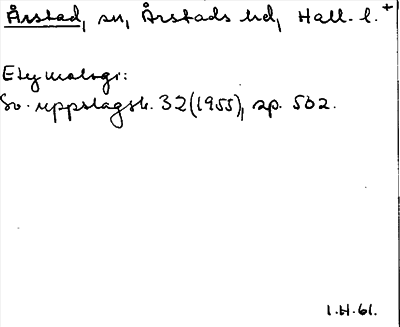 Årstad, sn, Årstads hd, Hall. l. +
Etymologi:
Sv. uppslagsb. 32 (1955), sp. 502.
1.H.61.